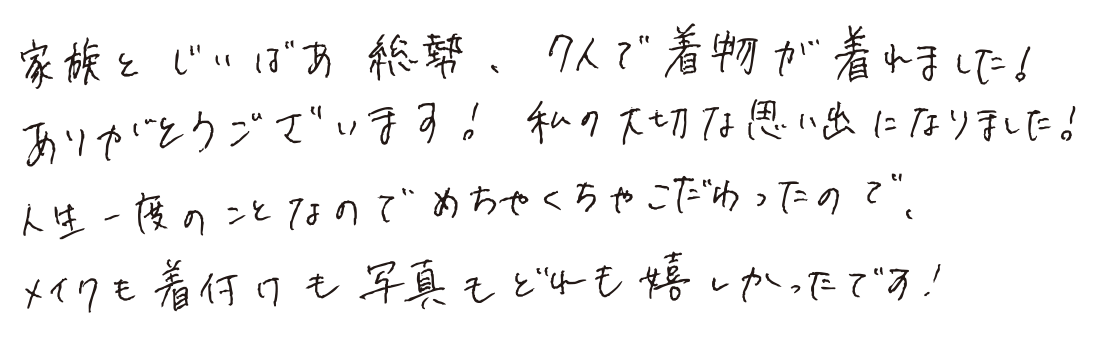 家族とじいばあ 総勢、7人で着物が着れました!
ありがとうございます! 私の大切な思い出になりました!
人生一度のことなのでめちゃくちゃこだわったので、
メイクも着付けも写真もどれも嬉しかったです!